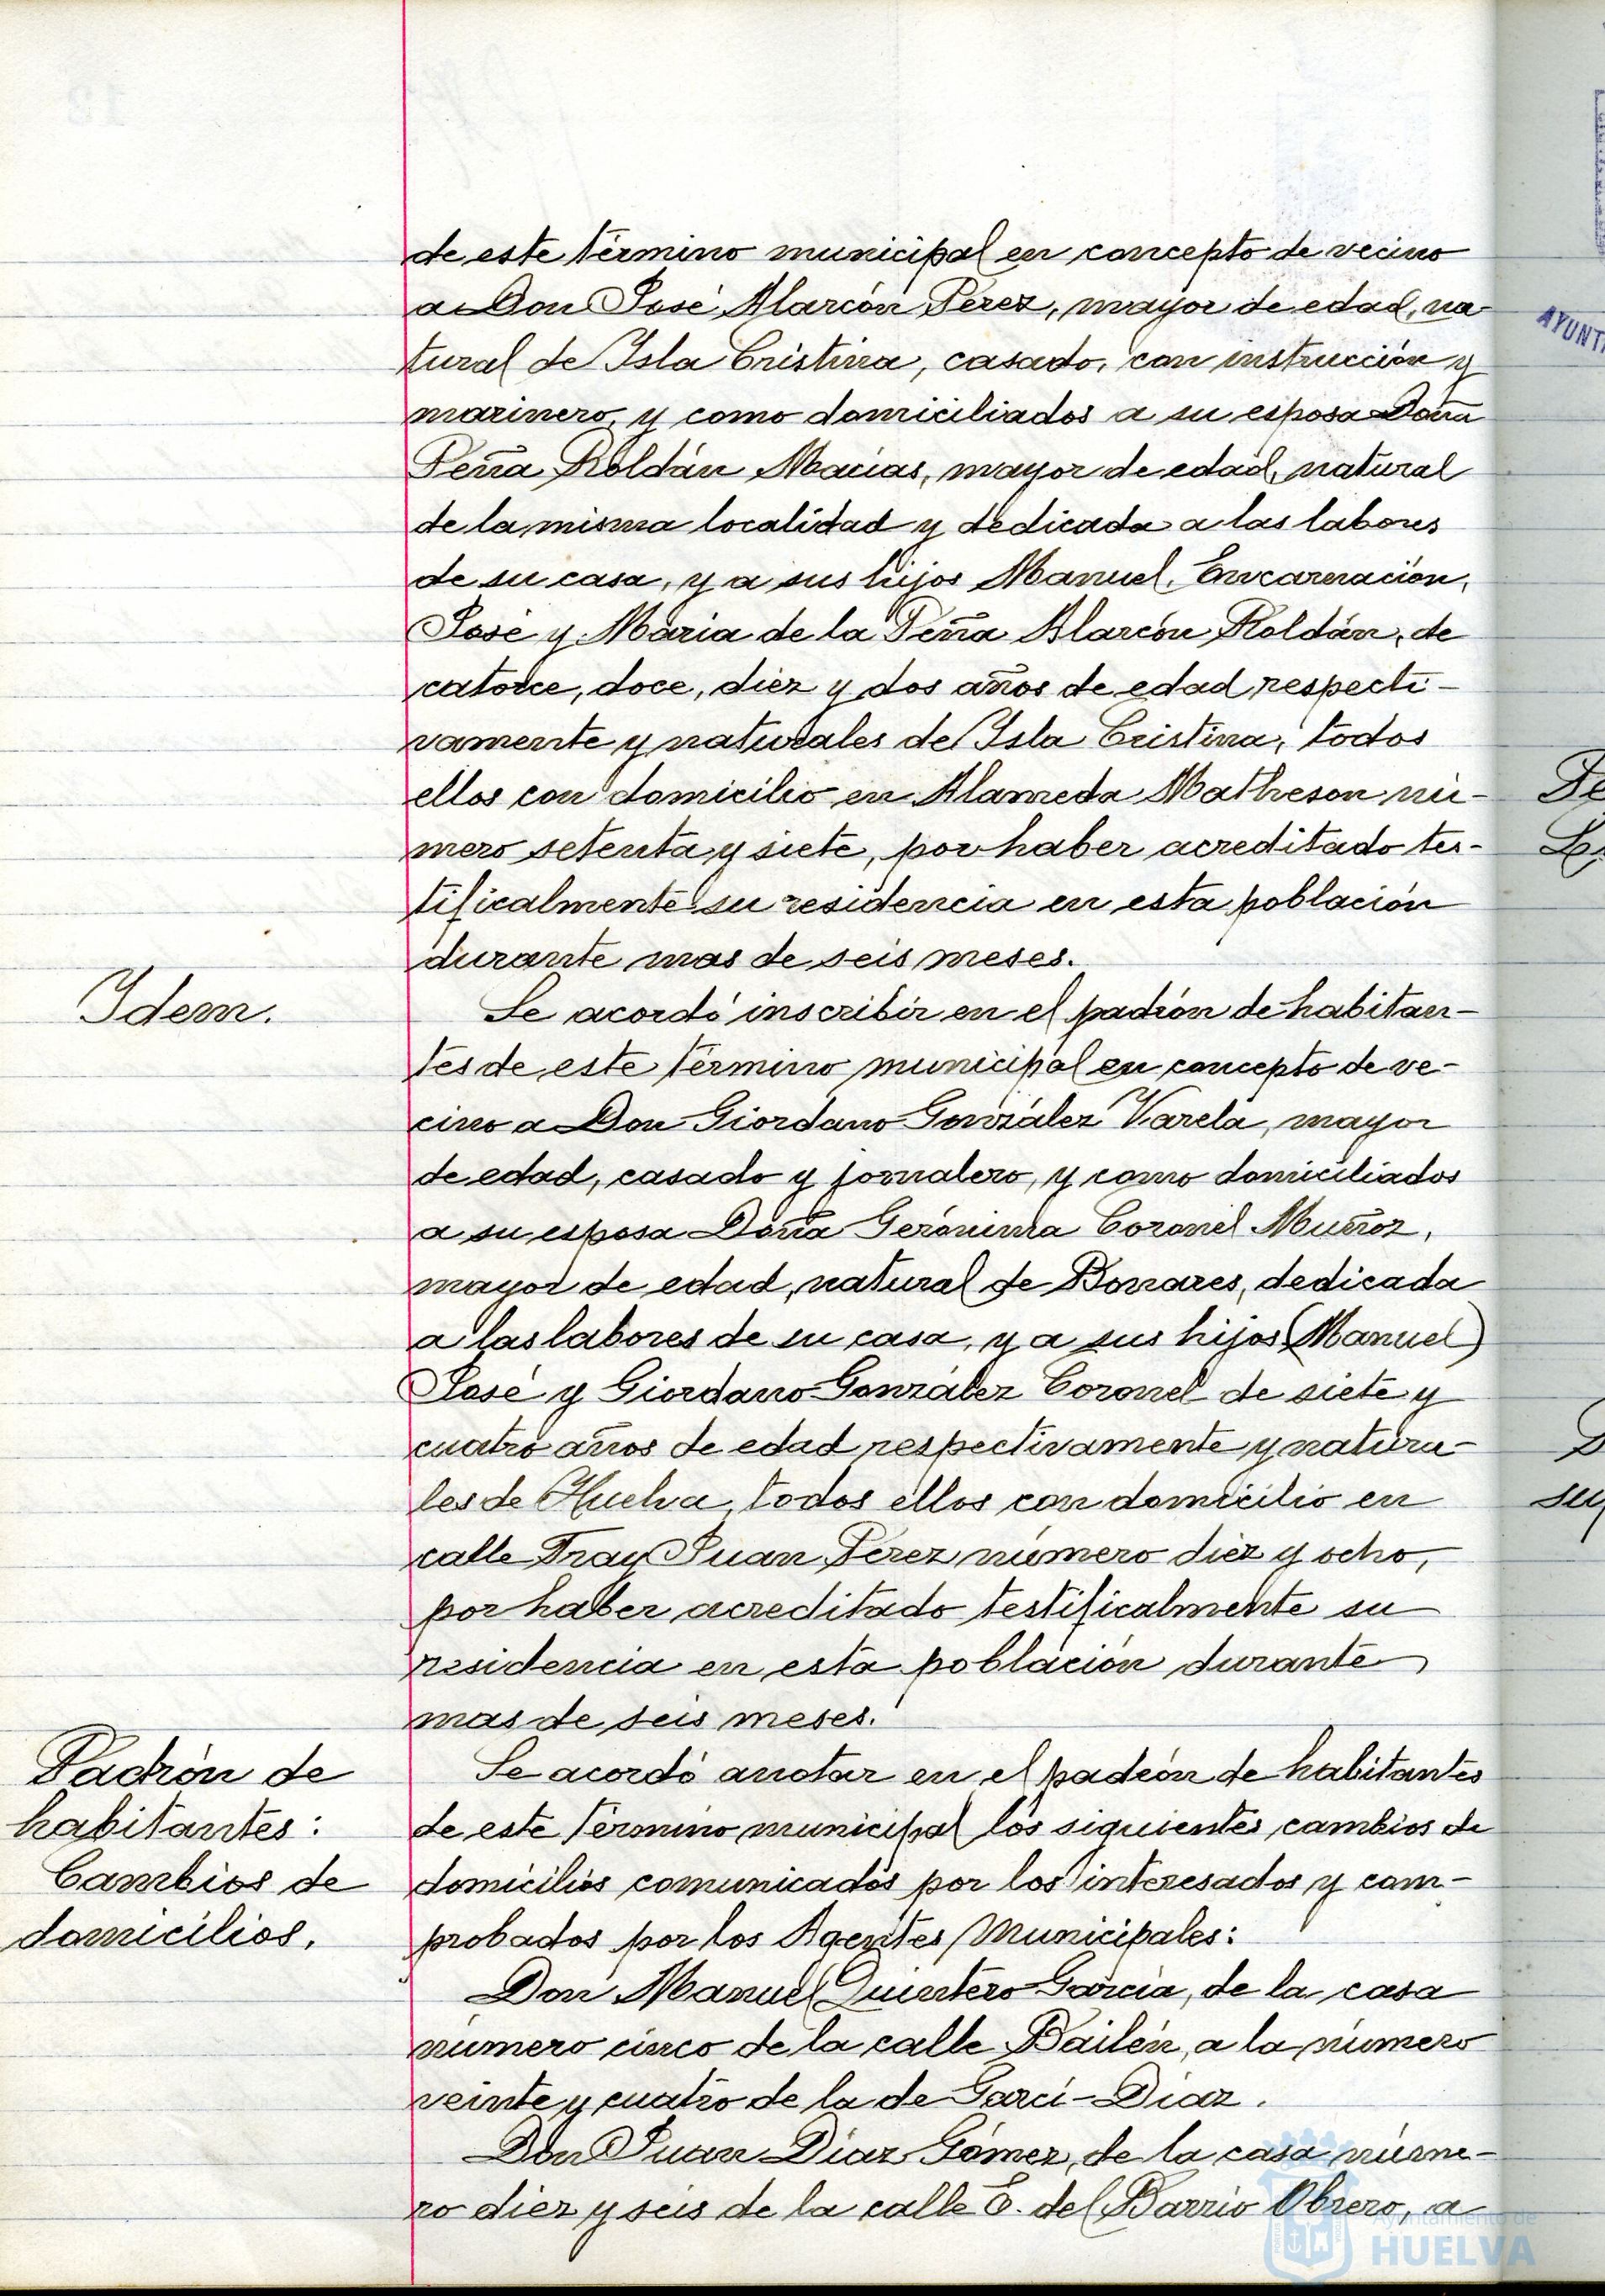 de este término municipal en concepto de vecino
a Don José Alarcón Pérez, mayor de edad, na-
tural de Isla Cristina, casado, con instrucción y
marinero, y como domiciliados a su esposa Doña
Peña Roldán Macías, mayor de edad, natural
de la misma localidad y dedicada a las labores
de su casa, y a sus hijos Manuel, Encarnación,
José y María de la Peña Alarcón Roldán, de
catorce, doce, diez y dos años de edad respecti-
vamente y naturales de Isla Cristina, todos
ellos con domicilio en Alameda Matheson nú-
mero setenta y siete, por haber acreditado tes-
tificalmente su residencia en esta población
durante mas de seis meses.
Idem.
Se acordó inscribir en el padrón de habitan-
tes de este término municipal en concepto de ve-
cino a Don Giordano González Varela, mayor
de edad, casado y jornalero, y como domiciliados
a su esposa Doña Gerónima Coronel Muñoz,
mayor de edad, natural de Bonares, dedicada
a las labores de su casa, y a sus hijos (Manuel)
José y Giordano González Coronel de siete y
cuatro años de edad respectivamente y natura-
les de Huelva, todos ellos con domicilio en
calle Fray Juan Pérez número diez y ocho,
por haber acreditado testificalmente su
residencia en esta población durante
mas de seis meses.
Padrón de
habitantes:
Cambios de
domicilios.
Se acordó anotar en el padrón de habitantes
de este término municipal los siguientes cambios de
domicilios comunicados por los interesados y com-
probados por los Agentes Municipales:
Don Manuel Quintero García, de la casa
número cinco de la calle Bailén, a la número
veinte y cuatro de la de Garci-Díaz.
Don Juan Díaz Gómez, de la casa núme-
ro diez y seis de la calle E. del Barrio Obrero, a
Ayuntamiento de
HUELVA
AYUNT